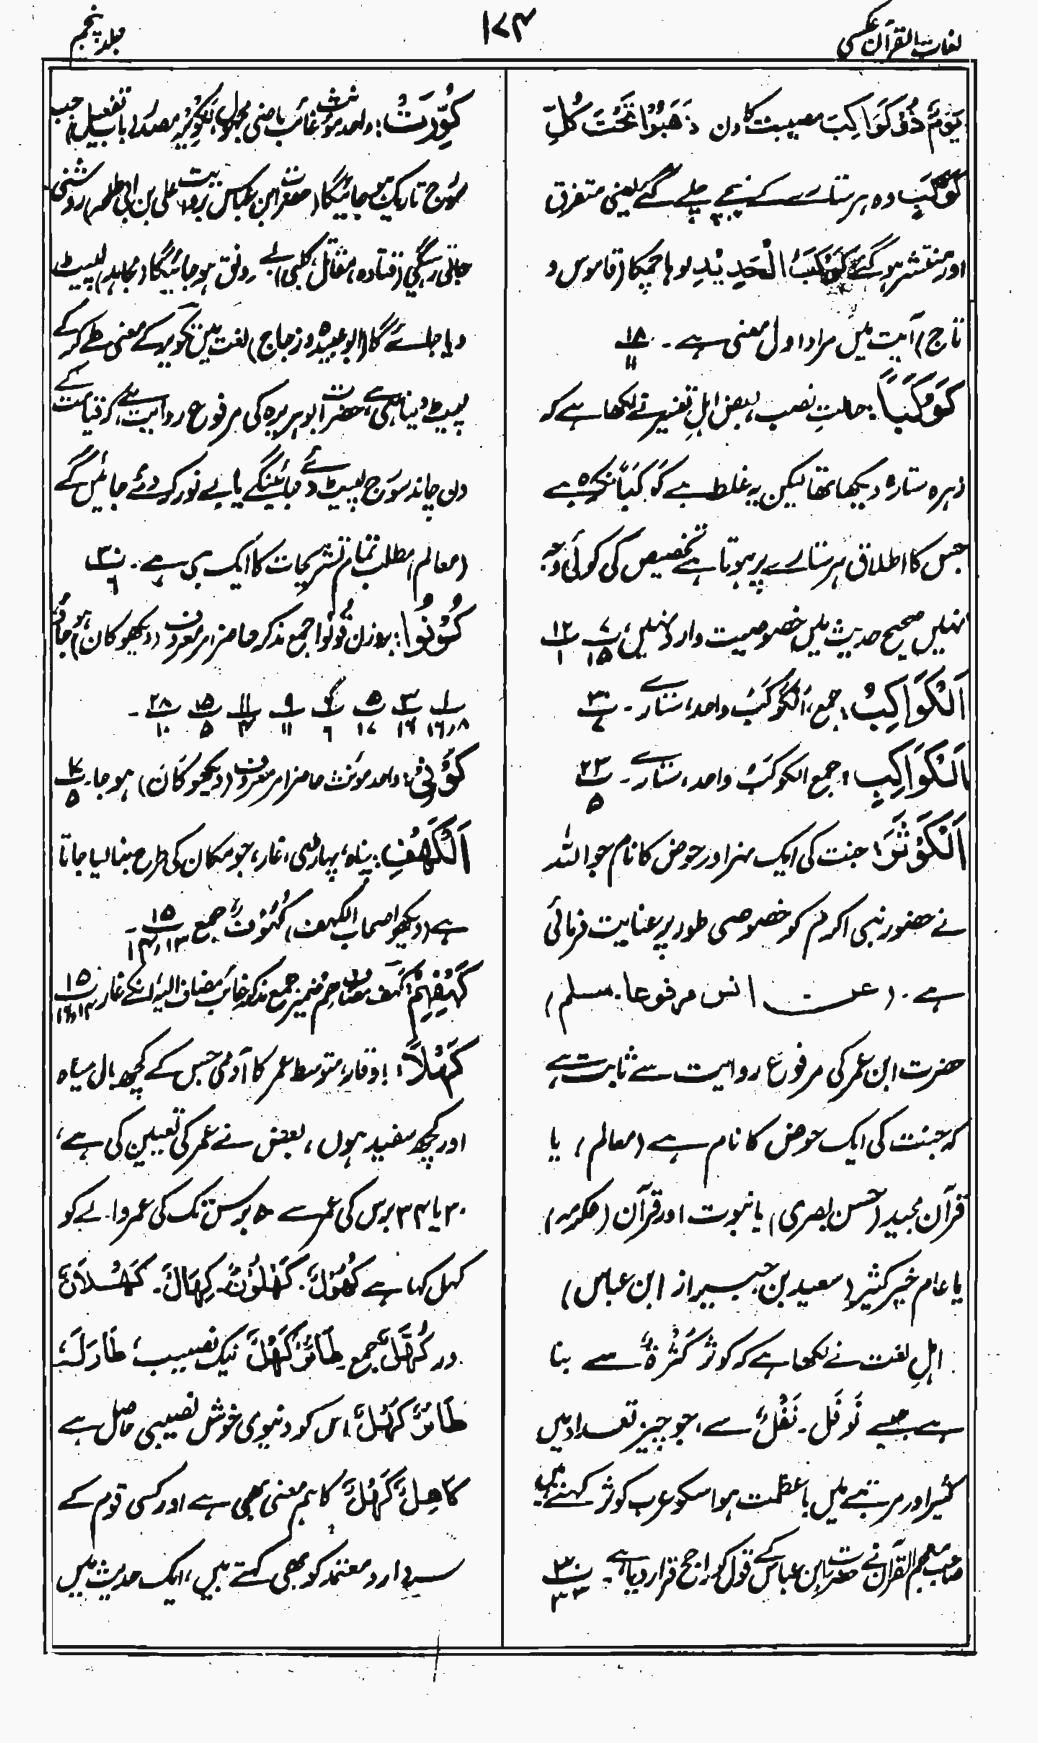 لغات القرآن عکسی
۱۷۴
جلد پنجم
یَوْمٌ ذُوْ کَوَاکِبَ مصیبت کا دن ذَھَبُوْا تَحْتَ کُلِّ
کَوْکَبٍ وہ ہر ستارے کے نیچے چلے گئے یعنی متفرق
اور منتشر ہو گئے کَوْکَبُ الْحَدِیْدِ لوہا چمکا (قاموس و
تاج) آیت میں مراد اول معنی ہے۔ ۱۸/۱۱
کَوْکَبًا: حالتِ نصب، بعض اہلِ تفسیر نے لکھا ہے کہ
زہرہ ستارہ دیکھا تھا لیکن یہ غلط ہے کَوْکَبًا نکرہ ہے
جس کا اطلاق ہر ستارے پر ہوتا ہے تخصیص کی کوئی وجہ
نہیں صحیح حدیث میں خصوصیت وارد نہیں، ۷/۱۵ ۱۲/۱
اَلْکَوَاکِبُ: جمع، اَلْکَوْکَبُ واحد، ستارے۔ ۳۰/۷
اَلْکَوَاکِبِ: جمع الکوکبُ واحد، ستارے۔ ۲۳/۵
اَلْکَوْثَرَ: جنت کی ایک نہر اور حوض کا نام جو اللہ
نے حضور نبی اکرم کو خصوصی طور پر عنایت فرمائی
ہے۔ (عن انس مرفوعا۔ مسلم)
حضرت ابن عمر کی مرفوع روایت سے ثابت ہے
کہ جنت کی ایک حوض کا نام ہے (معالم) یا
قرآن مجید (حسن بصری) یا نبوت اور قرآن (عکرمہ)
یا عام خیر کثیر (سعید بن جبیر از ابن عباس)
اہلِ لغت نے لکھا ہے کہ کوثر کَثْرَۃٌ سے بنا
ہے جیسے نَوفَل۔ نَفْلٌ سے، جو چیز تعداد میں
کثیر اور مرتبے میں باعظمت ہو اسکو عرب کوثر کہتے ہیں
صاحب معجم القرآن نے حضرت ابن عباس کے قول کو راجح قرار دیا ہے۔ ۳۰/۳۳
کُوِّرَتْ: واحد مؤنث غائب ماضی مجہول، تَکْوِیْر مصدر (باب تفعیل) جب
سورج تاریک ہو جائیگا (حضرت ابن عباس بروایت علی بن ابی طلحہ) روشنی
جاتی رہیگی (قتادہ، مقاتل، کلبی) بے رونق ہو جائیگا (مجاہد) لپیٹ
دیا جائے گا (ابو عبیدہ و زجاج) لغت میں تکویر کے معنی طے کر کے
لپیٹ دینا ہے، حضرت ابو ہریرہ کی مرفوع روایت ہے، کہ قیامت کے
دن چاند سورج لپیٹ دئے جائینگے یا بے نور کر دئے جائیں گے
(معالم) مطلب تمام تشریحات کا ایک ہی ہے۔ ۳۰/۶
کُوْنُوْا: بروزن قولوا جمع مذکر حاضر امر معروف (دیکھو کان) ہو جاؤ
۱/۸،۱۶ ۳/۱۶ ۵/۱۷ ۶/۶ ۹/۱۱ ۱۱/۴ ۱۵/۵ ۲۸/۱۰ ۔
کُوْنِیْ: واحد مونث حاضر امر معروف (دیکھو کَانَ) ہو جا۔ ۱۷/۵
اَلْکَھْفِ: پناہ، پہاڑی، غار، جو مکان کی طرح بنا لیا جاتا
ہے (دیکھو اصحاب الکہف) کُہُوْفٌ جمع ۱۵/۱۳،۱۴ ۔
کَہْفِہِمْ: کہف مضاف ہم ضمیر جمع مذکر غائب مضاف الیہ انکے غار ۱۵/۱۴،۱۶
کَہْلًا: باوقار، متوسط عمر کا آدمی جس کے کچھ بال سیاہ
اور کچھ سفید ہوں، بعض نے عمر کی تعیین کی ہے،
۳۰ یا ۳۴ برس کی عمر سے ۵۰ برس تک کی عمر والے کو
کہل کہا ہے کُہُوْلٌ۔ کَہْلُوْنَ۔ کِہَالٌ۔ کَہْلَانٌ
اور کُہَّلٌ جمع۔ طَائِرٌ کَہْلٌ نیک نصیب، طَارَ لَہٗ
طَائِرٌ کَہْلٌ، اس کو دنیوی خوش نصیبی حاصل ہے
کَاہِلٌ کَہْلٌ کا ہم معنی بھی ہے اور کسی قوم کے
سردار و معتمد کو بھی کہتے ہیں، ایک حدیث میں